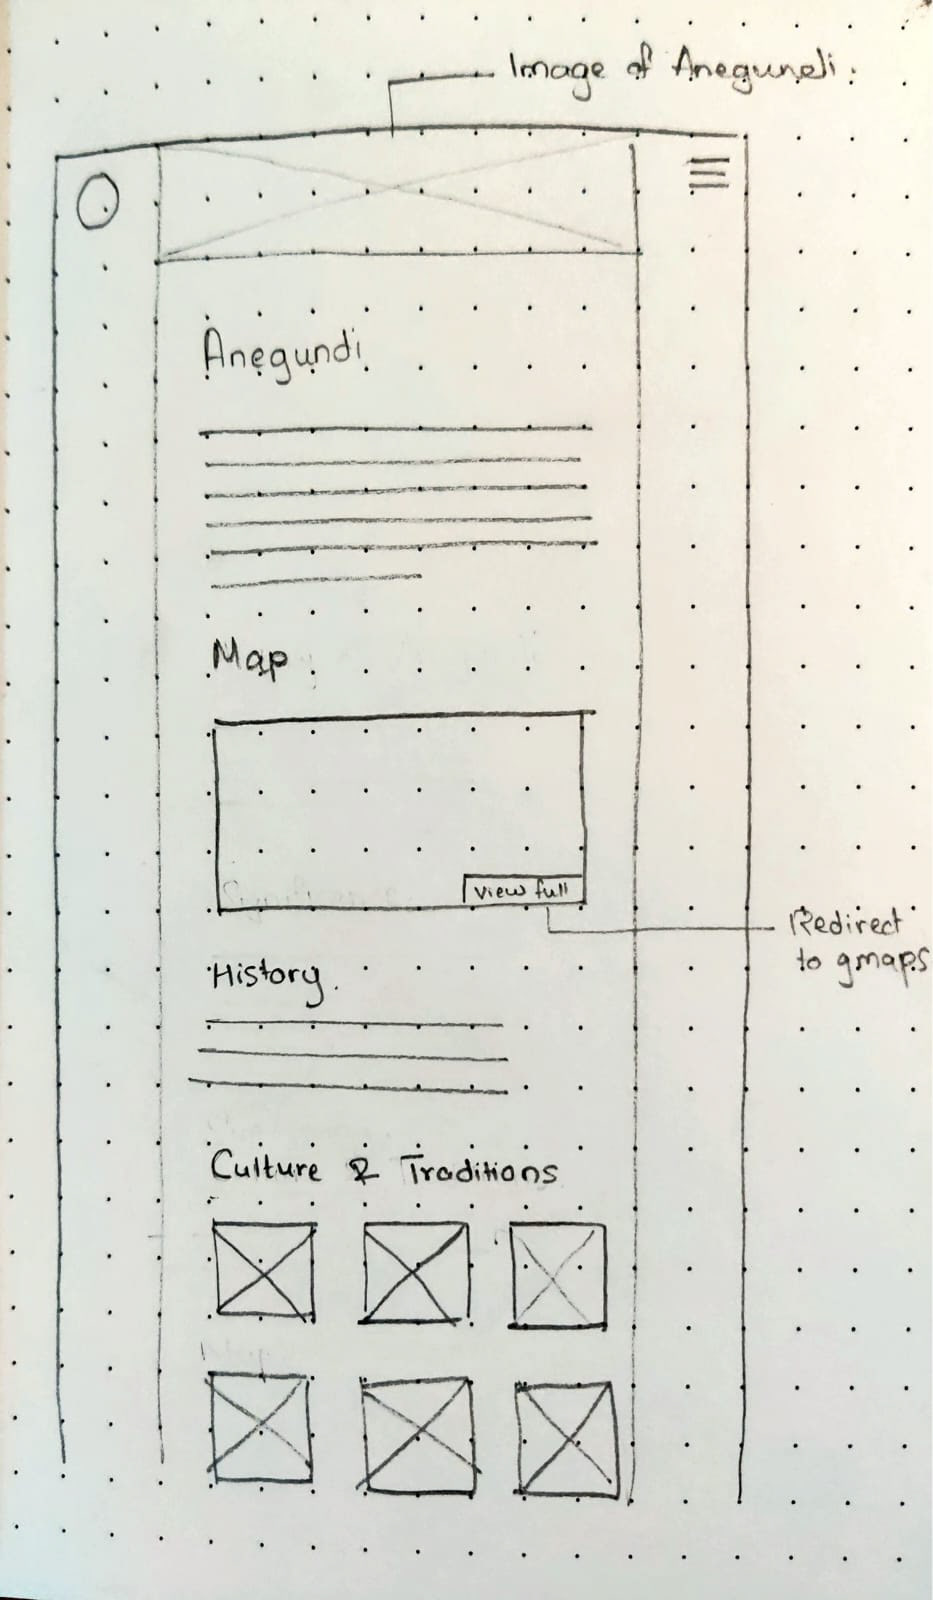 Image of Anegundi.
Anegundi
Map
View full
Redirect
to gmaps
History
Culture & Traditions